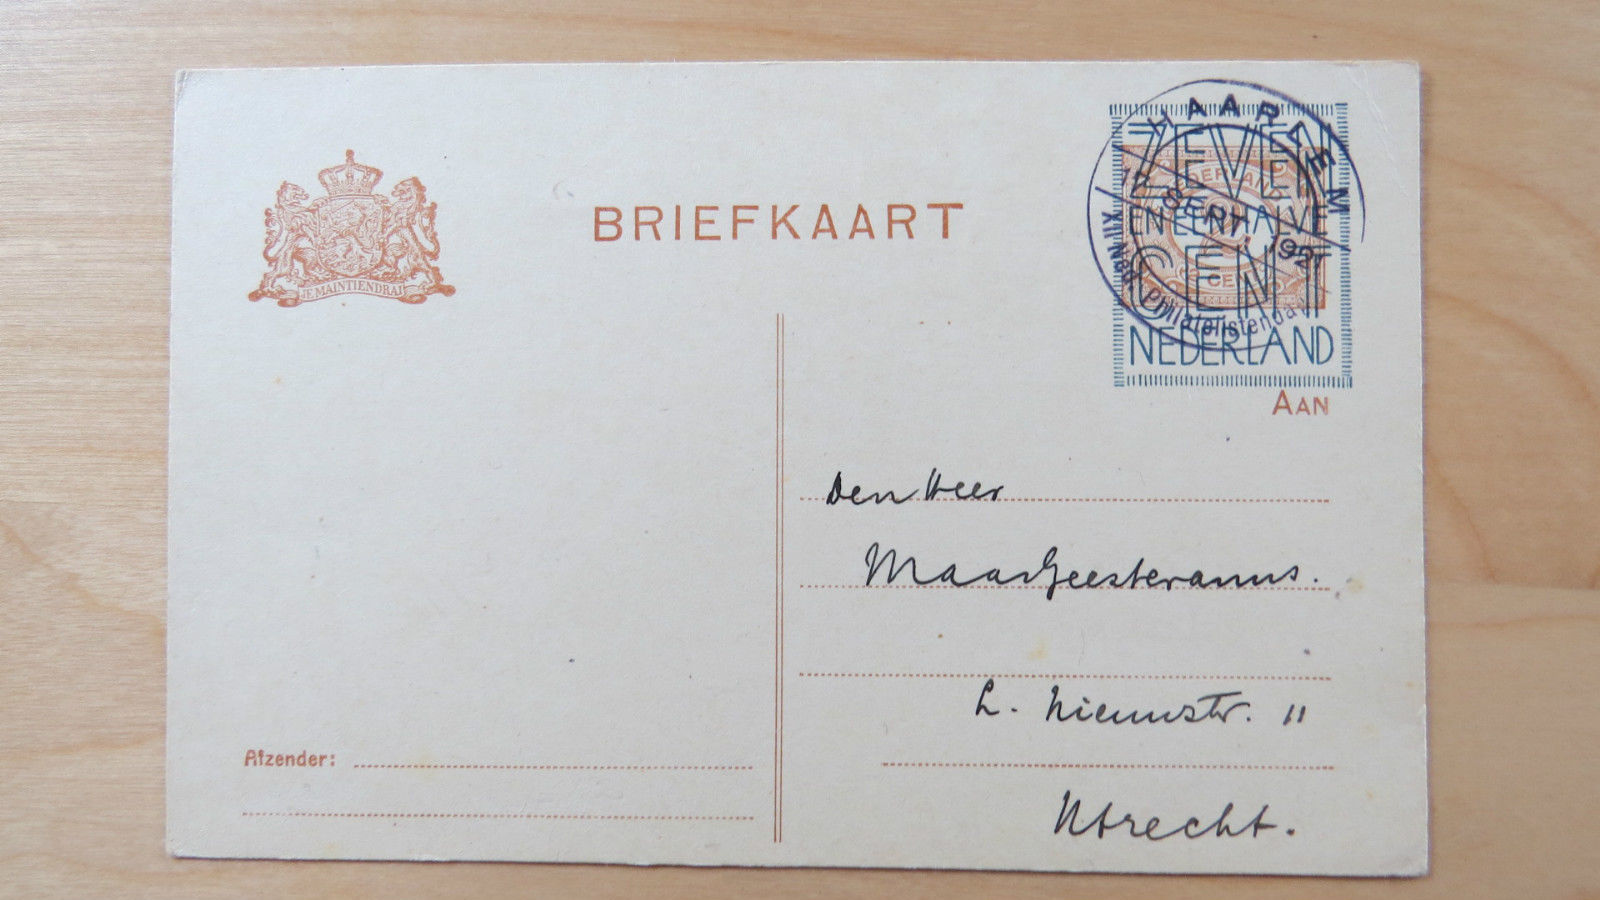 BRIEFKAART
JE MAINTIENDRAI
HAARLEM
17 SEPT 1921
XII Ned. Philatelistendag
ZEVEN
EN EEN HALVE
CENT
NEDERLAND
NEDERLAND
CENT
AAN
Den Heer
MaasGeesteranus.
L. Nieuwstr. 11
Utrecht.
Afzender: